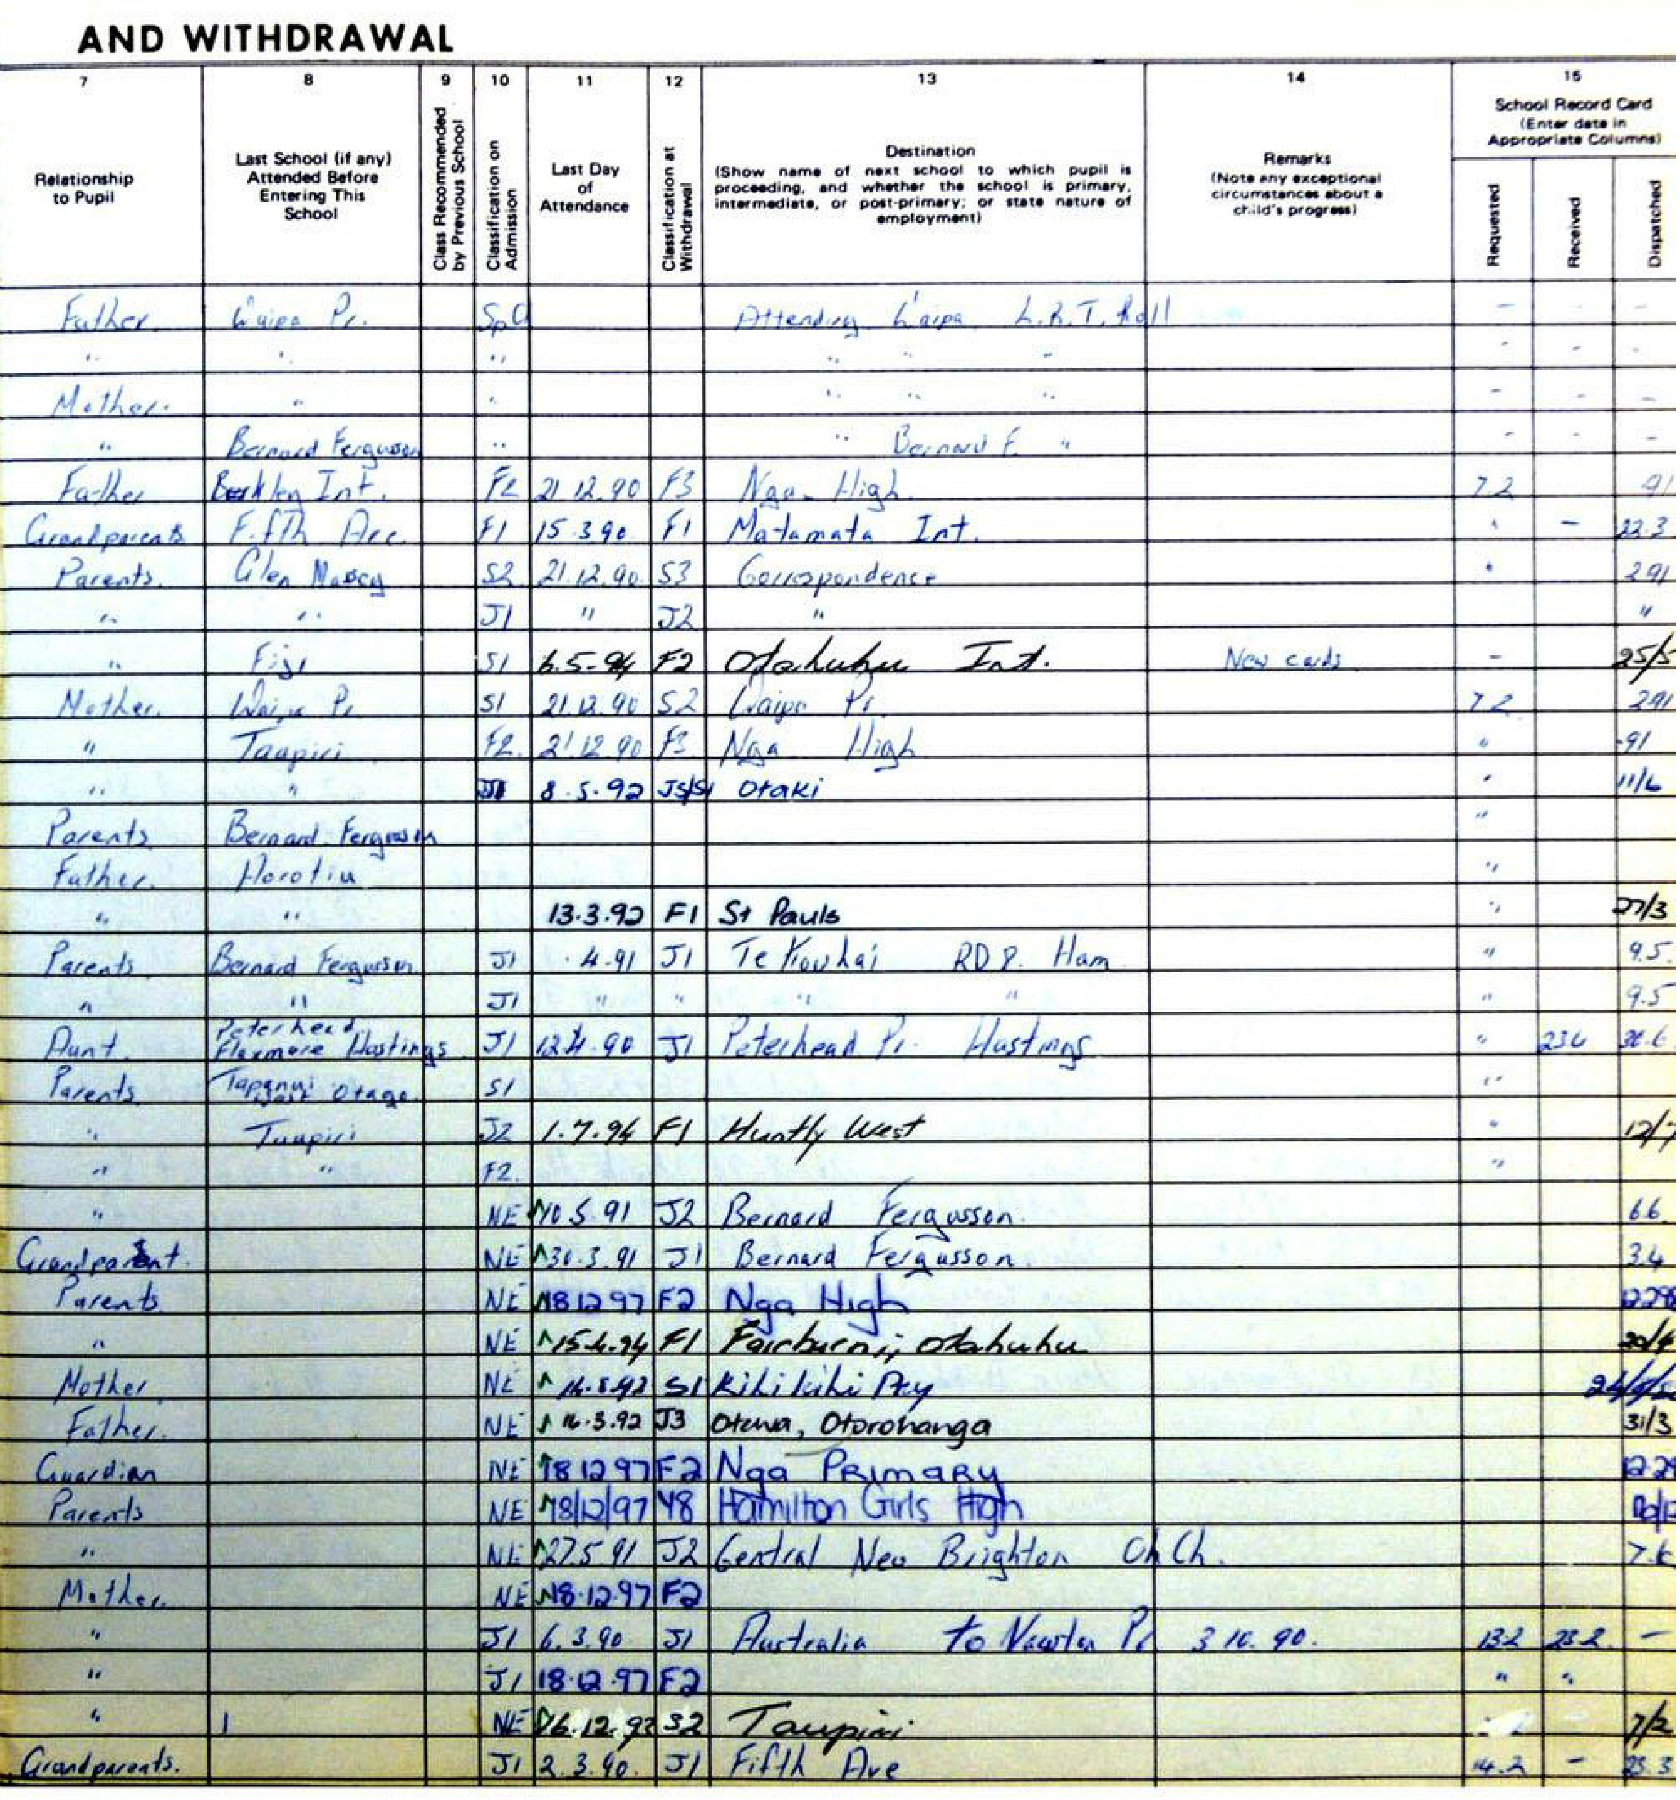 AND WITHDRAWAL
7 8 9 10 11 12 13 14 15
Relationship to Pupil
Last School (if any) Attended Before Entering This School
Class Recommended by Previous School
Classification on Admission
Last Day of Attendance
Classification at Withdrawal
Destination
(Show name of next school to which pupil is proceeding, and whether the school is primary, intermediate, or post-primary; or state nature of employment)
Remarks
(Note any exceptional circumstances about a child's progress)
School Record Card
(Enter date in Appropriate Columns)
Requested
Received
Dispatched
Father. Waipa Pr. Sp Cl Attending Waipa L.R.T. Roll - - -
" " " " " " - - -
Mother. " " " " " - - -
" Bernard Fergusson " " Bernard F. " - - -
Father Berkley Int. F2 21.12.90 F3 Nga. High. 7.2 91
Grandparents Fifth Ave. F1 15.3.90 F1 Matamata Int. " - 22.3
Parents. Glen Massey S2 21.12.90 S3 Correspondence " 2 91
" " J1 " J2 " "
" Fiji S1 6.5-94 F2 Otahuhu Int. New cards - 25/5
Mother. Waipa Pr S1 21.12.90 S2 Waipa Pr. 7.2 2 91
" Taupiri F2. 21.12.90 F3 Nga High " -91
" " J1 8.5.92 J3/S1 Otaki " 11/6
Parents Bernard Fergusson "
Father. Horotiu "
" " 13.3.92 F1 St Pauls " 27/3
Parents Bernard Fergusson J1 .4.91 J1 Te Kowhai RD 8. Ham " 9.5.
" " J1 " " " " " 9.5
Aunt. Peterhead Flaxmere Hastings J1 12.4.90 J1 Peterhead Pr. Hastings " 23 6
Parents. Tapanui West Otago. S1 "
" Taupiri J2 1.7.94 F1 Huntly West " 12/7
" " F2. "
" NE 10.5.91 J2 Bernard Fergusson. 6.6
Grandparent. NE 31.3.91 J1 Bernard Fergusson. 3.4
Parents NE 18 12 97 F2 Nga High
" NE 15.4.94 F1 Fairburn, Otahuhu
Mother NE S1 Kihikihi Pry
Father. NE 16.3.92 J3 Otewa, Otorohanga 31/3
Guardian NE 18 12 97 F2 Nga Primary
Parents NE 18/12/97 Y8 Hamilton Girls High
" NE 27.5 91 J2 Central New Brighton Ch Ch. 7.6
Mother. NE 18.12.97 F2
" J1 6.3.90 J1 Australia to Newton Pr 3 10. 90. 13.2 23.2 -
" J1 18.12.97 F2 " "
" NE 16.12.93 S2 Taupiri - 7/2
Grandparents. J1 2.3.90. J1 Fifth Ave 14.2 - 23.3